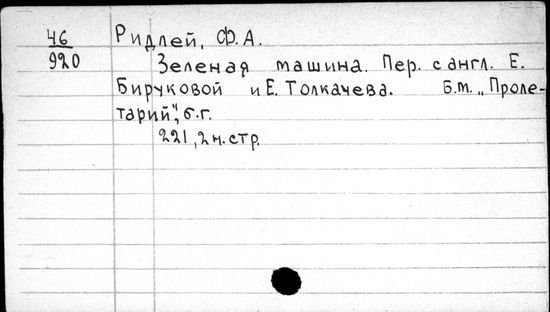 46
920
Ридлей, Ф.А.
Зеленая машина. Пер. с англ. Е.
Бируковой и Е. Толкачева. Б.м. „Проле-
тарий", б.г.
221, 2 н. стр.